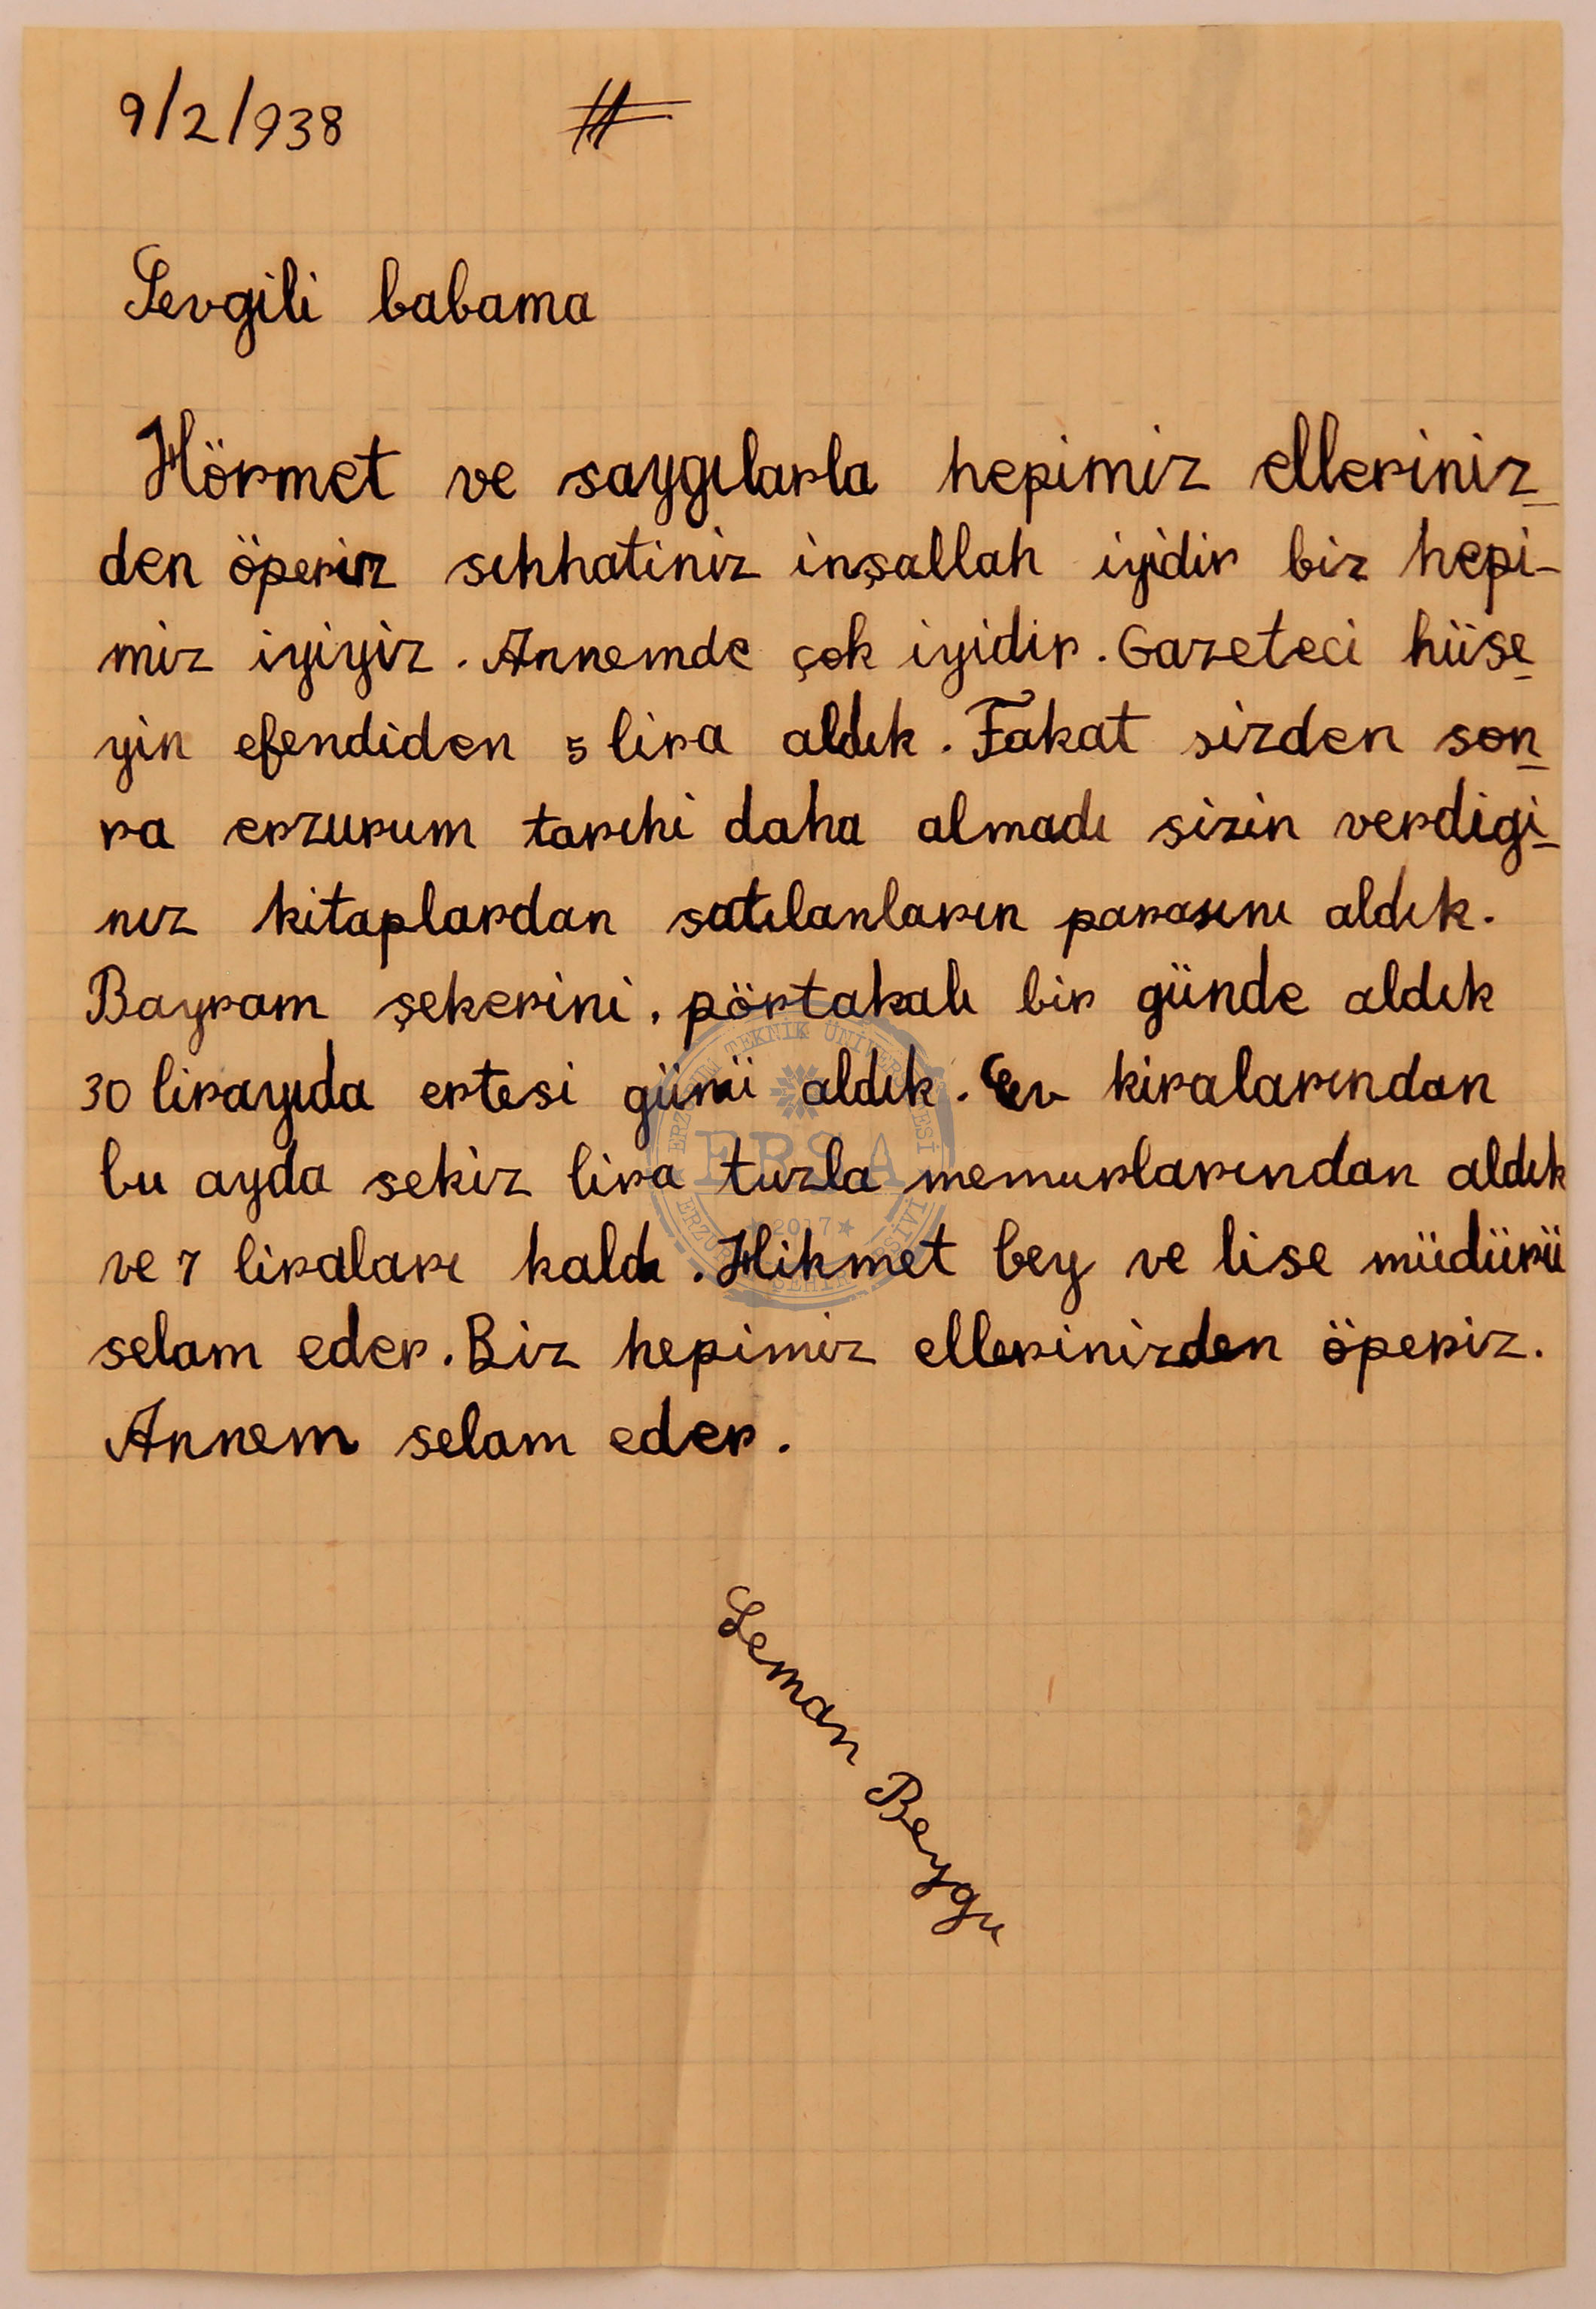 9/2/938
Sevgili babama
Hörmet ve saygılarla hepimiz elleriniz_
den öperiz sıhhatiniz inşallah iyidir biz hepi-
miz iyiyiz. Annemde çok iyidir. Gazeteci hüse_
yin efendiden 5 lira aldık. Fakat sizden son_
ra erzurum tarıhi daha almadı sizin verdigi_
nız kitaplardan satılanların parasını aldık.
Bayram şekerini, pörtakalı bir günde aldık
30 lirayıda ertesi günü aldık. Ev kiralarından
bu ayda sekiz lira tuzla memurlarından aldık
ve 7 liraları kaldı. Hikmet bey ve lise müdürü
selam eder. Biz hepimiz ellerinizden öperiz.
Annem selam eder.
Leman Beygu
ERZURUM TEKNİK ÜNİVERSİTESİ
ERSA
★ 2017 ★
ERZURUM ŞEHİR ARŞİVİ